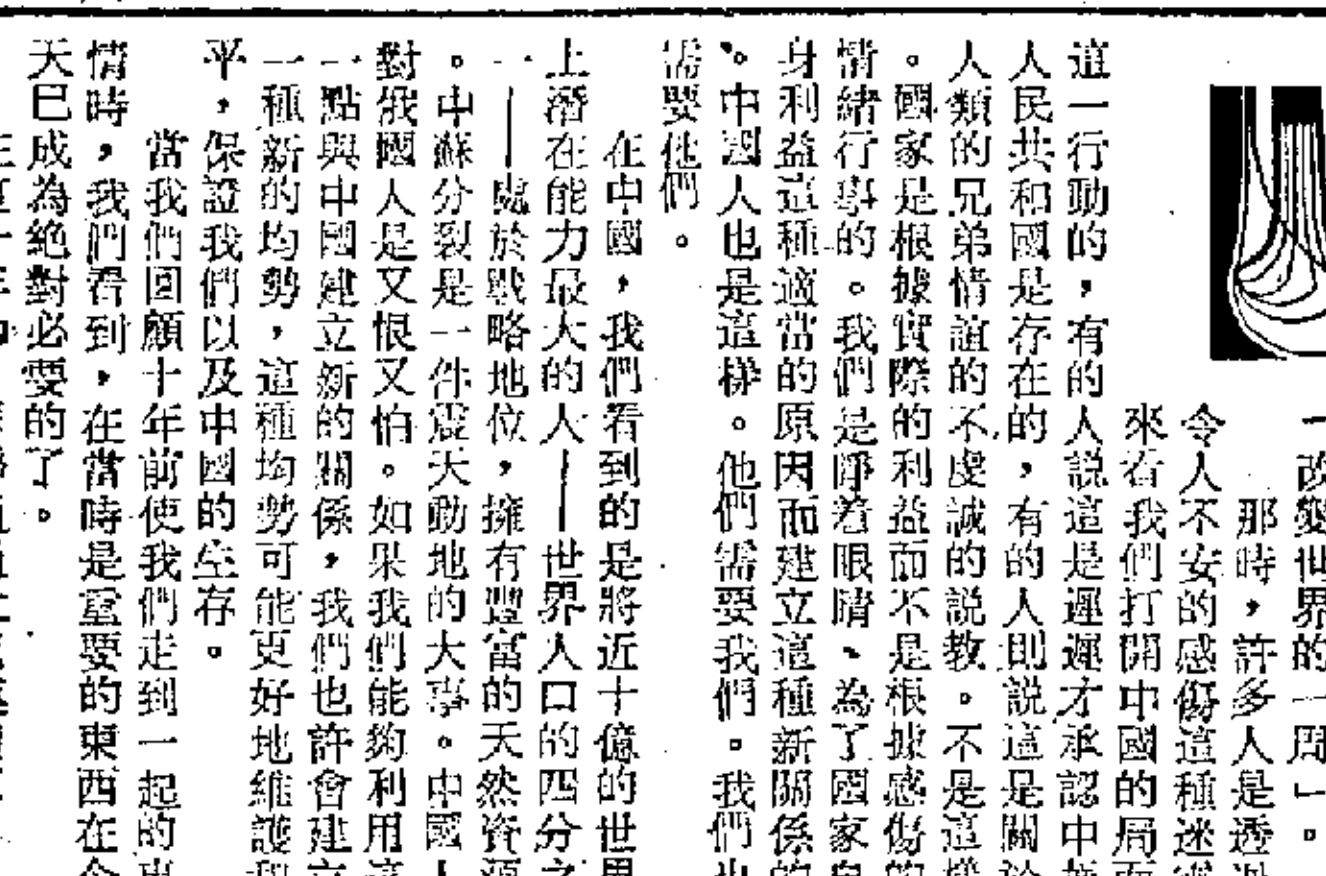 改變世界的一周」。
那時，許多人是透過
令人不安的感傷這種迷
來看我們打開中國的局面
這一行動的，有的人説這是遲遲才承認中華
人民共和國是存在的，有的人則説這是關於
人類的兄弟情誼的不虔誠的説教。不是這樣
。國家是根據實際的利益而不是根據感傷的
情緒行事的。我們是睜着眼睛、為了國家自
身利益這種適當的原因而建立這種新關係的
。中國人也是這樣。他們需要我們。我們也
需要他們。
在中國，我們看到的是將近十億的世界
上潛在能力最大的人——世界人口的四分之
一——處於戰略地位，擁有豐富的天然資源
。中蘇分裂是一件震天動地的大事。中國人
對俄國人是又恨又怕。如果我們能夠利用這
一點與中國建立新的關係，我們也許會建立
一種新的均勢，這種均勢可能更好地維護和
平，保證我們以及中國的生存。
當我們回顧十年前使我們走到一起的事
情時，我們看到，在當時是重要的東西在今
天已成為絕對必要的了。